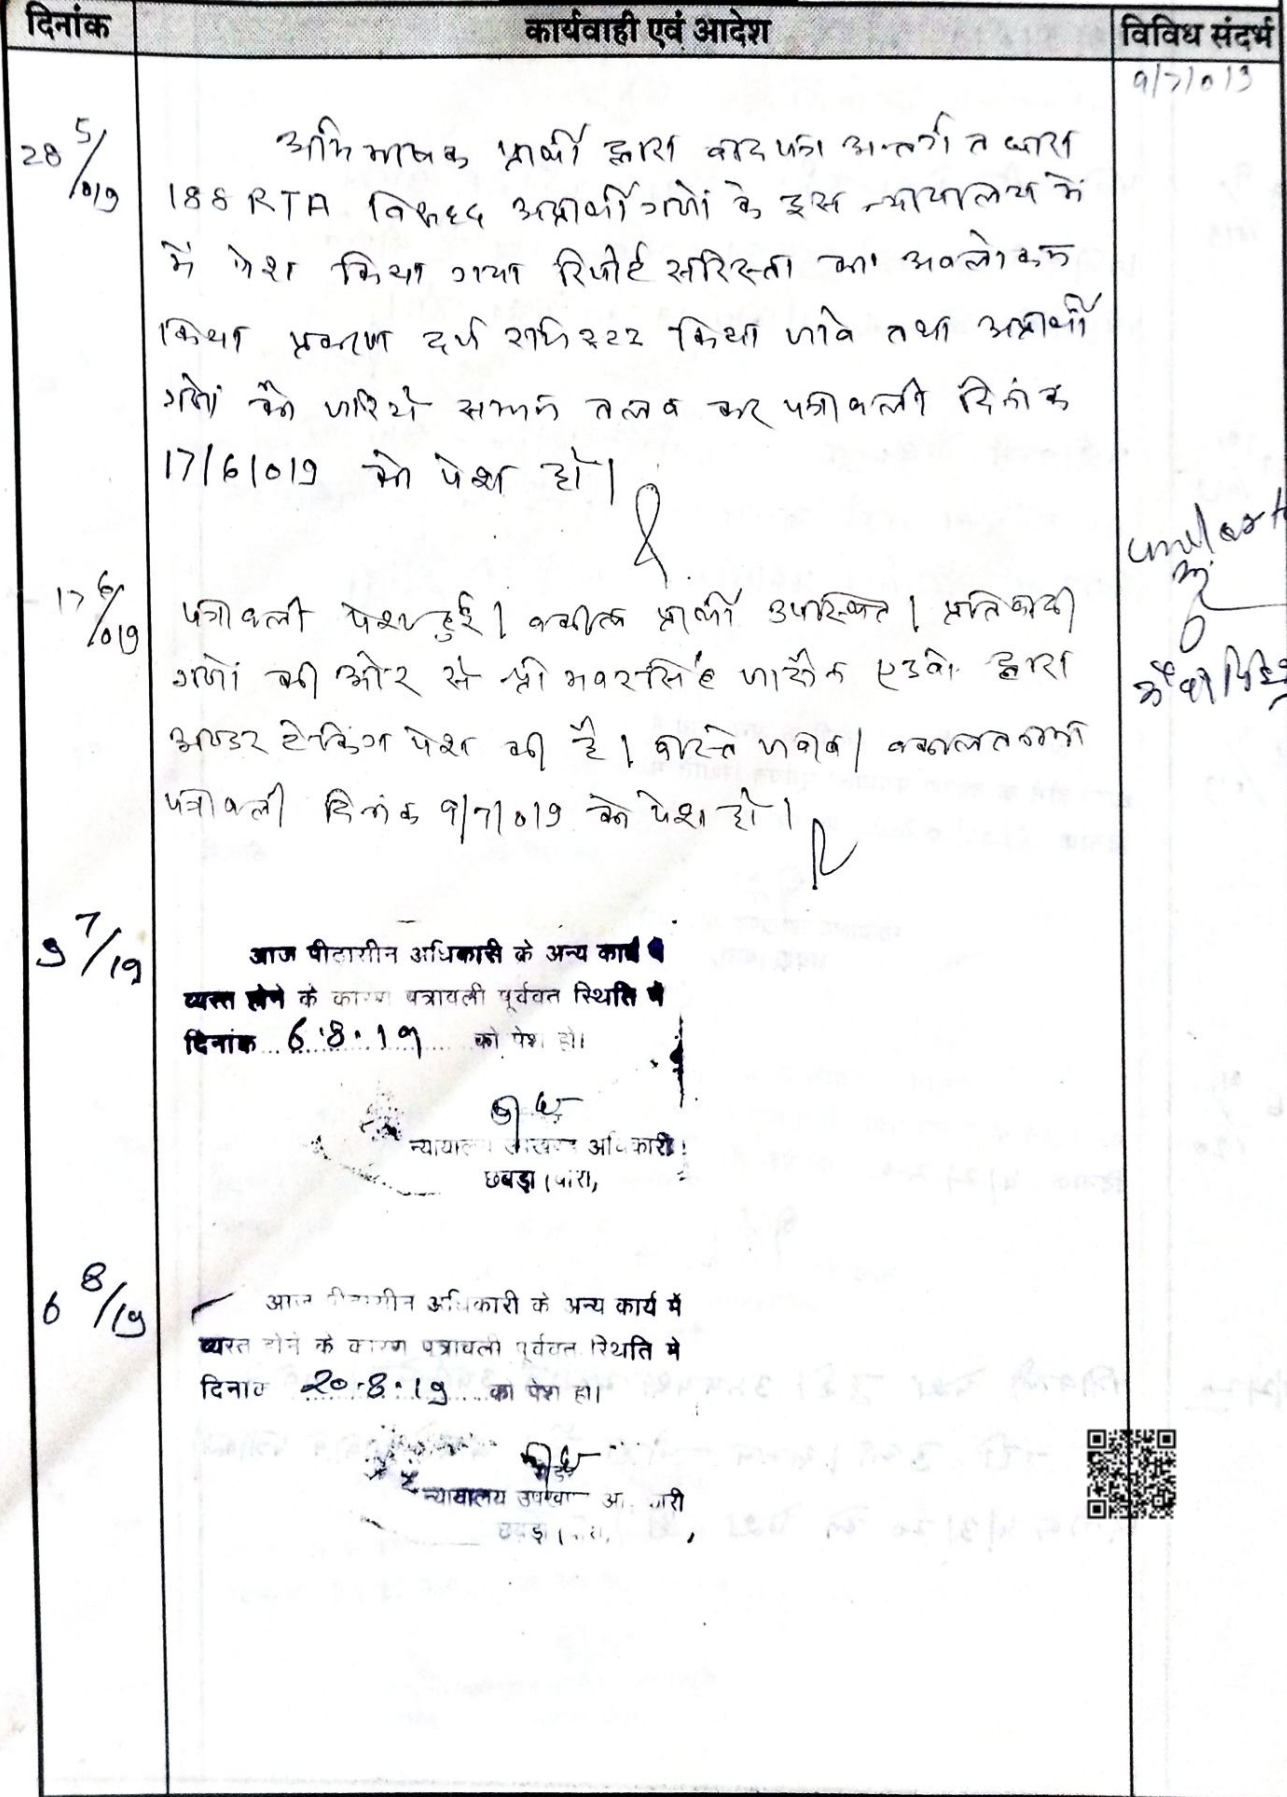 दिनांक
कार्यवाही एवं आदेश
विविध संदर्भ
9/7/019
28 5/019
अभिभाषक प्रार्थी द्वारा वाद पत्र अन्तर्गत धारा
188 RTA विरुद्ध अप्रार्थीगणों के इस न्यायालय में
में पेश किया गया रिपोर्ट सरिस्ता का अवलोकन
किया प्रकरण दर्ज रजिस्टर किया जावे तथा अप्रार्थी
गणों को जरिये सम्मन तलब कर पत्रावली दिनांक
17/6/019 को पेश हो।
17 6/019
पत्रावली पेश हुई। वकील प्रार्थी उपस्थित। प्रतिवादी
गणों की ओर से श्री भवरसिंह एडवो द्वारा
अण्डर टेकिंग पेश की है। वास्ते जवाब। वकालतनामा
पत्रावली दिनांक 9/7/019 को पेश हो।
9 7/19
आज पीठासीन अधिकारी के अन्य कार्य में
व्यस्त होने के कारण पत्रावली पूर्ववत स्थिति में
दिनांक 6.8.19 को पेश हो।
न्यायालय उपखण्ड अधिकारी
छबड़ा (बारां)
6 8/19
आज पीठासीन अधिकारी के अन्य कार्य में
व्यस्त होने के कारण पत्रावली पूर्ववत स्थिति मे
दिनांक 20.8.19 को पेश हो।
न्यायालय उपखण्ड अधिकारी
छबड़ा